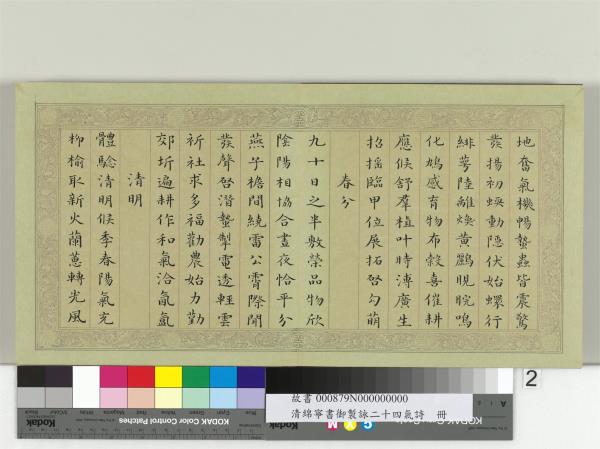 地奮氣機暢蟄蟲皆震驚
發揚初蝡動隱伏始蠉行
緋萼陸離煥黃鸝睍睆鳴
化鳩感育物布穀喜催耕
應候舒羣植叶時溥廣生
招搖臨甲位展拓啓勾萌
春分
九十日之半敷榮品物欣
陰陽相協合晝夜恰平分
燕子檐間繞雷公霄際聞
發聲啓潛蟄掣電透輕雲
祈社求多福勸農始力勤
郊圻遍耕作和氣洽氤氳
清明
體騐清明候季春陽氣充
柳榆取新火蘭蕙轉光風
故書 000879N000000000
清綿寧書御製詠二十四氣詩 冊
2
Kodak
KODAK Color Control Patches
Blue
Cyan
Green
Yellow
Red
Magenta
White